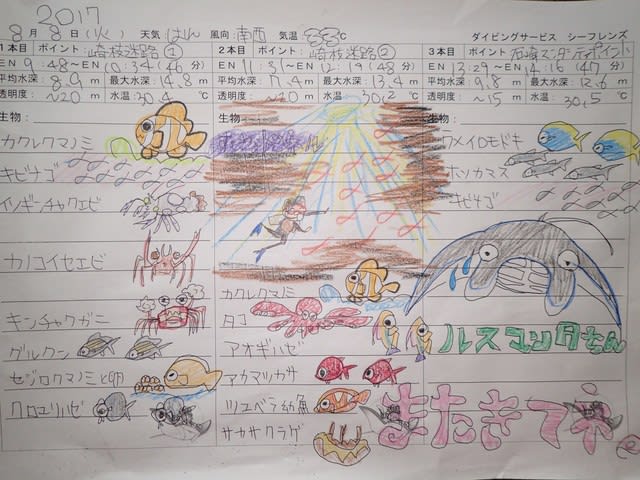 2017
8月8日(火) 天気 はれ 風向 南西 気温 33℃ ダイビングサービス シーフレンズ
1本目 ポイント 崎枝迷路① 2本目 ポイント 崎枝迷路② 3本目 ポイント 石崎マンタシティポイント
EN 9:48~EN 10:34(46分) EN 11:31~EN 12:19(48分) EN 13:29~EN 14:16(47分)
平均水深: 8.9m 最大水深: 14.8m 平均水深: 7.4m 最大水深: 13.4m 平均水深: 9.8m 最大水深: 12.6m
透明度: ~20m 水温: 30.4℃ 透明度: ~20m 水温: 30.2℃ 透明度: ~15m 水温: 30.5℃
生物: 生物 生物:
カクレクマノミ
キビナゴ
イソギンチャクエビ
カノコイセエビ
キンチャクガニ
グルクン
セジロクマノミと卵
クロユリハゼ
カクレクマノミ
タコ
アオギハゼ
アカマツカサ
ツユベラ幼魚
サカサクラゲ
ウメイロモドキ
ホソカマス
キビナゴ
ノルスマンタちん
またきてネ